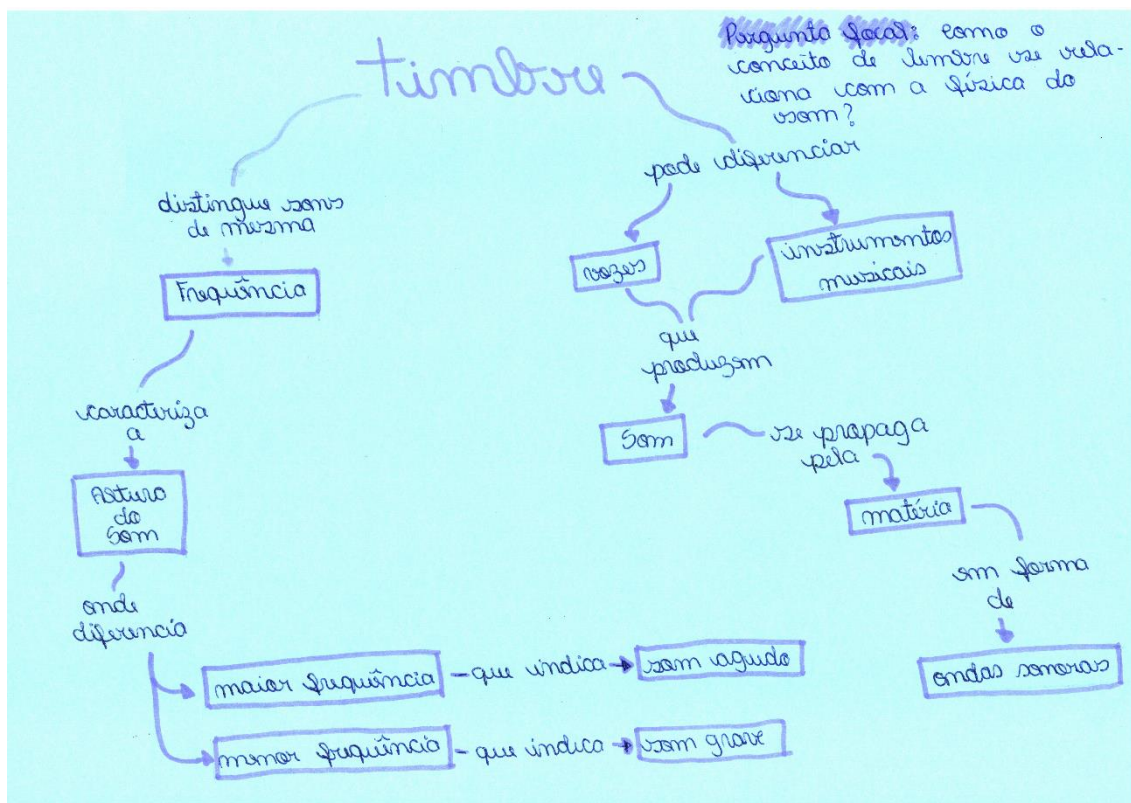 timbre
Pergunta focal: como o
conceito de timbre se rela-
ciona com a física do
som?
distingue sons
de mesma
Frequência
caracteriza
a
Altura
do
Som
onde
diferencia
maior frequência - que indica som agudo
menor frequência - que indica som grave
pode diferenciar
vozes
instrumentos
musicais
que
produzem
Som
se propaga
pela
matéria
em forma
de
ondas sonoras